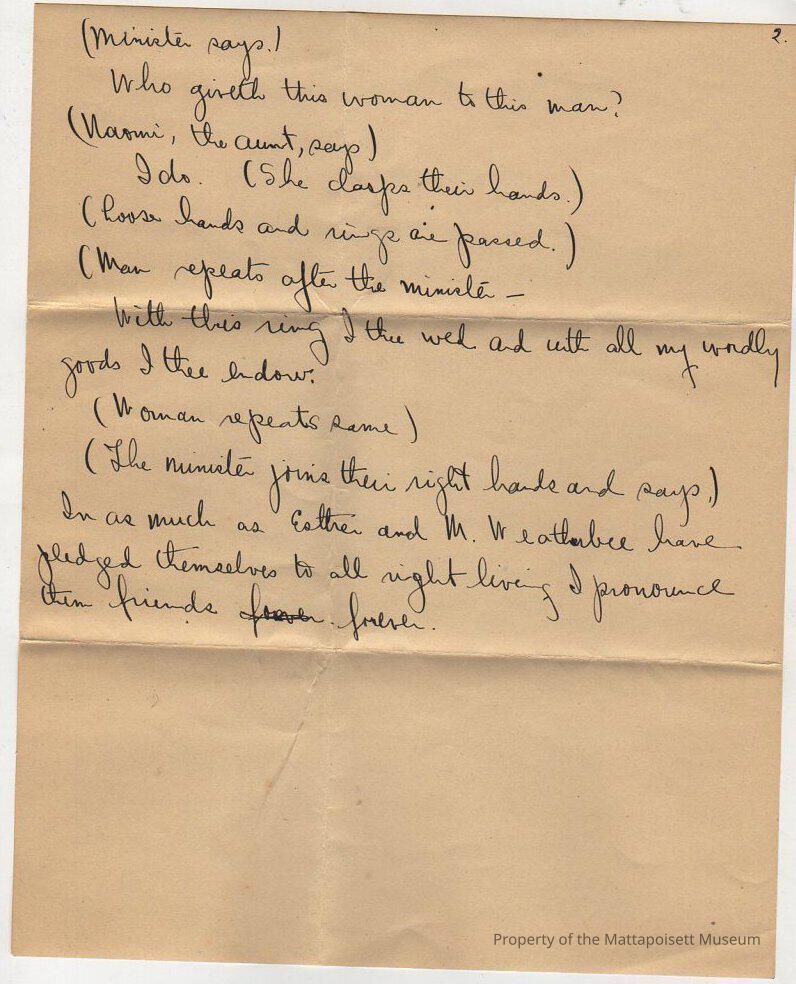 2.
(Minister says.)
Who giveth this woman to this man?
(Naomi, the aunt, says)
I do. (She clasps their hands.)
(Loose hands and rings are passed.)
(Man repeats after the minister –
With this ring I thee wed and with all my wordly
goods I thee endow.
(Woman repeats same)
(The minister joins their right hands and says,)
In as much as Esther and M. Weatherbee have
pledged themselves to all right living I pronounce
them friends forever forever.
Property of the Mattapoisett Museum